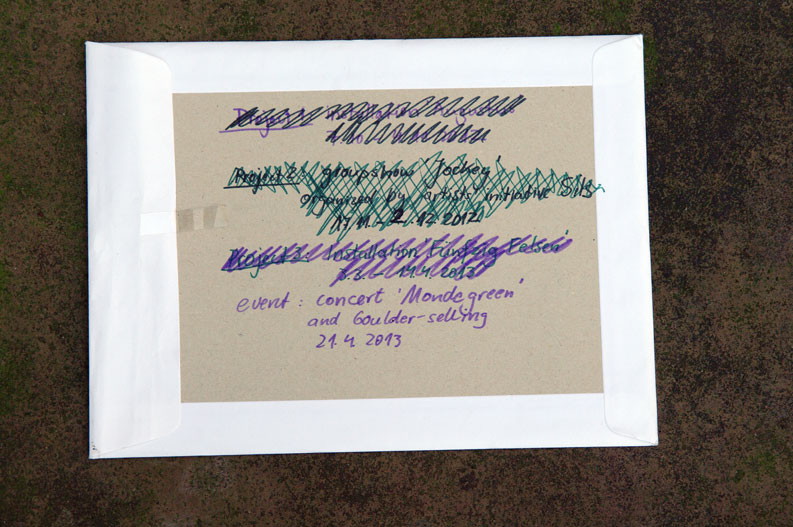 Projekt 2: groupshow 'Jockey'
organized by artist-initiative SILS
17.11. - 2.12.2012
Projekt 3: Installation Fünfzig Felsen'
- 14.4. 2013
event: concert 'Mondegreen'
and Goulder-selling
21.4. 2013